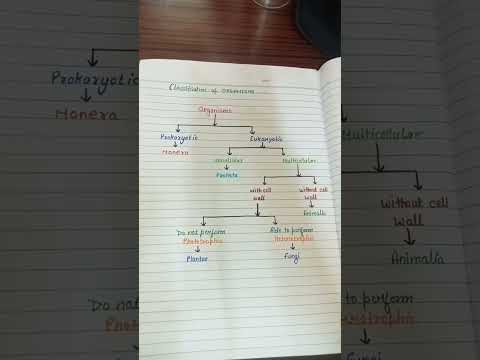 Classification of organisms
Organisms
Prokaryotic Eukaryotic
Monera
Unicellular Multicellular
Protista
with cell without cell
wall wall
Animalia
Do not perform Able to perform
Phototrophic Heterotrophic
Plantae Fungi
Prokaryotic
Monera
Multicellular
without cell
wall
Animalia
Do not perform
to perform